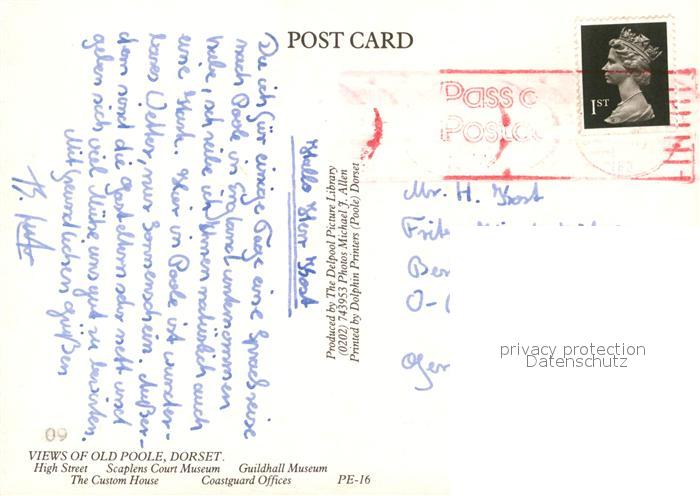 POST CARD
1ST
Pass
Postco
Hallo Herr Kost
Da ich für einige Tage eine Sprachreise
nach Poole in England unternommen
habe, schreibe ich Ihnen natürlich auch
eine Karte. Hier in Poole ist wunder-
bares Wetter, nur Sonnenschein. Außer-
dem sind die Gasteltern sehr nett und
geben sich viel Mühe uns gut zu bewirten.
Mit freundlichen Grüßen
Produced by The Delpool Picture Library
(0202) 743953 Photos Michael J. Allen
Printed by Dolphin Printers (Poole) Dorset
Mr. H. Kost
Ber
O-
Ger
privacy protection
Datenschutz
09
VIEWS OF OLD POOLE, DORSET.
High Street Scaplens Court Museum Guildhall Museum
The Custom House Coastguard Offices PE-16